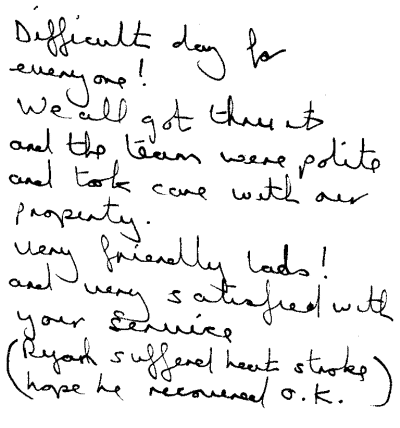 Difficult day for
everyone!
We all got thru it
and the team were polite
and took care with our
property.
very friendly lads!
and very satisfied with
your service
(Ryan suffered heat stroke
hope he recovered O.K.)